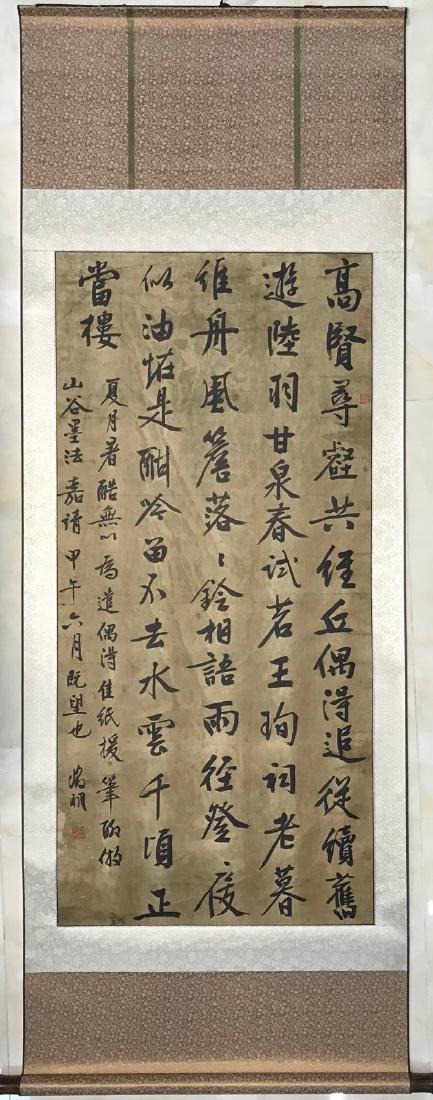 高賢尋壑共經丘偶得追從續舊
遊陸羽甘泉春試茗王珣祠老暮
維舟風簷落落鈴相語雨徑登登屐
似油恠是酣吟留不去水雲千頃正
當樓
夏月暑酷無以為遣偶得佳紙援筆
山谷墨法嘉靖甲午六月既望也